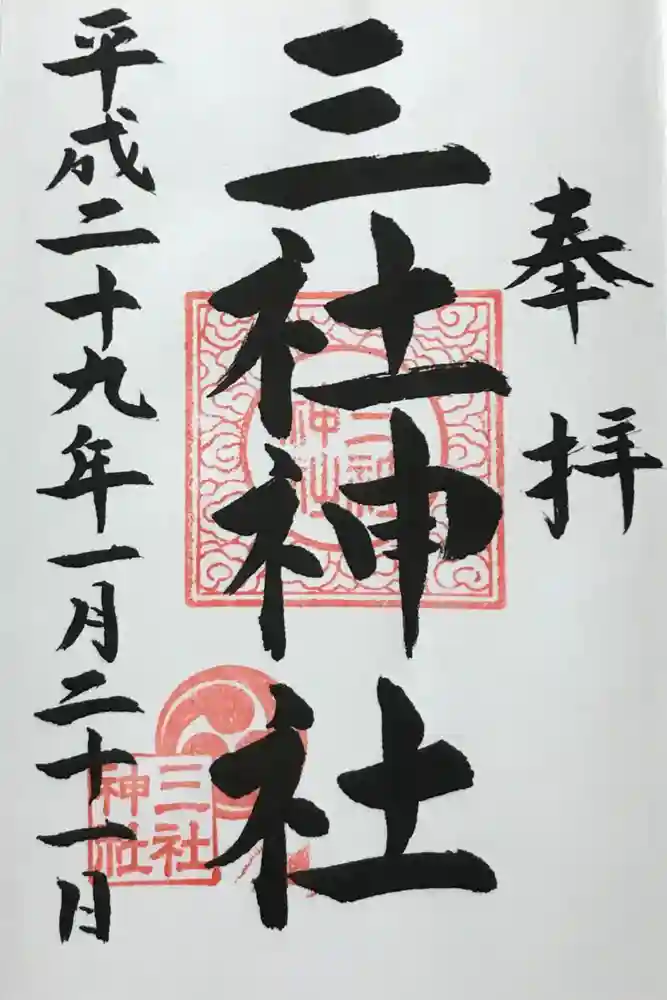 奉拝
三社神社
三社
神社
三社
神社
平成二十九年一月二十一月